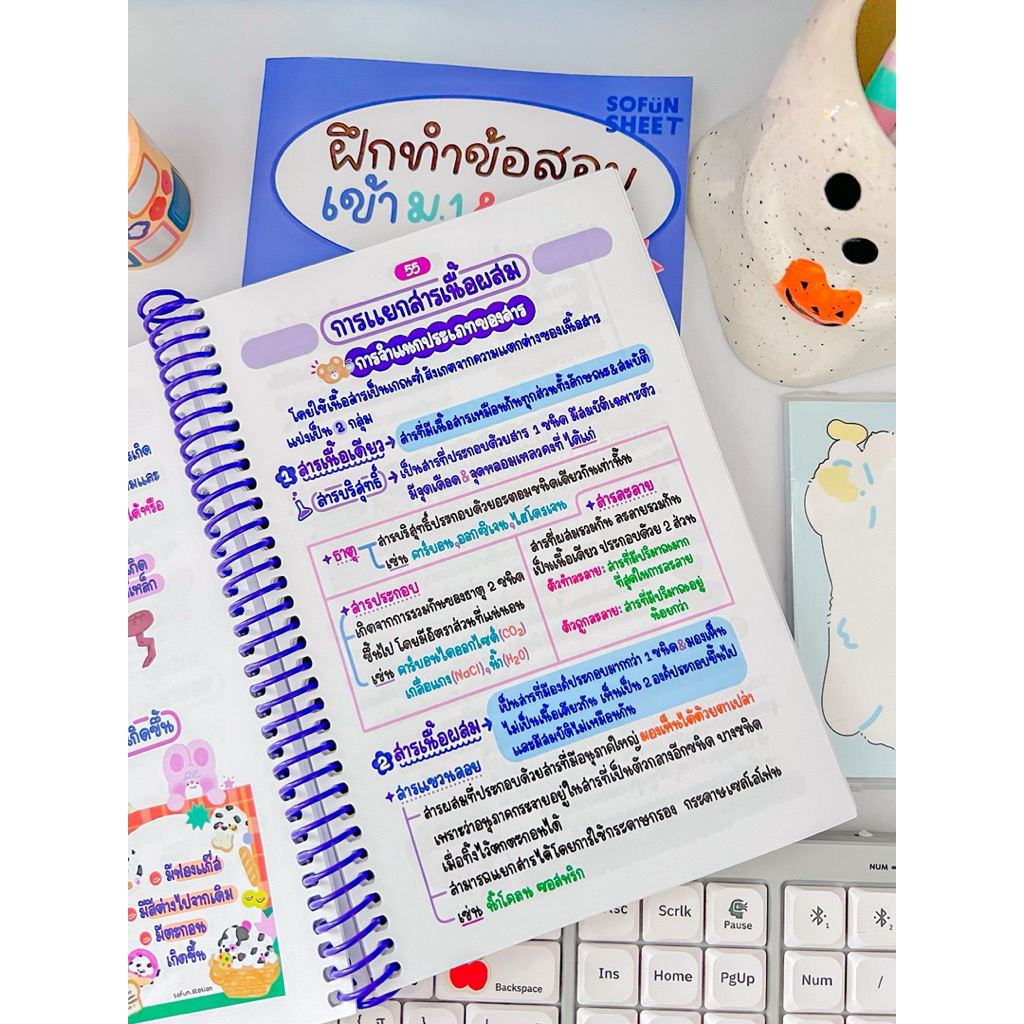 SOFÜN
SHEET
ฝึกทำข้อสอบ
เข้า ม.1
55
การแยกสารเนื้อผสม
การจำแนกประเภทของสาร
โดยใช้เนื้อสารเป็นเกณฑ์ สังเกตจากความแตกต่างของเนื้อสาร
แบ่งเป็น 2 กลุ่ม
1 สารเนื้อเดียว → สารที่มีเนื้อสารเหมือนกันทุกส่วนทั้งลักษณะ&สมบัติ
สารบริสุทธิ์ → เป็นสารที่ประกอบด้วยสาร 1 ชนิด มีสมบัติเฉพาะตัว
มีจุดเดือด&จุดหลอมเหลวคงที่ ได้แก่
ธาตุ สารบริสุทธิ์ประกอบด้วยอะตอมชนิดเดียวกันเท่านั้น
เช่น คาร์บอน,ออกซิเจน,ไฮโดรเจน
สารประกอบ
เกิดจากการรวมกันของธาตุ 2 ชนิด
ขึ้นไป โดยมีอัตราส่วนที่แน่นอน
เช่น คาร์บอนไดออกไซด์(CO₂)
เกลือแกง(NaCl),น้ำ(H₂O)
สารละลาย
สารที่ผสมรวมกัน ละลายรวมกัน
เป็นเนื้อเดียว ประกอบด้วย 2 ส่วน
ตัวทำละลาย: สารที่มีปริมาณมาก
ที่สุดในการละลาย
ตัวถูกละลาย: สารที่มีปริมาณอยู่
น้อยกว่า
2 สารเนื้อผสม → เป็นสารที่มีองค์ประกอบมากกว่า 1 ชนิด&มองเห็น
ไม่เป็นเนื้อเดียวกัน เห็นเป็น 2 องค์ประกอบขึ้นไป
และมีสมบัติไม่เหมือนกัน
สารแขวนลอย
สารผสมที่ประกอบด้วยสารที่มีอนุภาคใหญ่ มองเห็นได้ด้วยตาเปล่า
เพราะว่าอนุภาคกระจายอยู่ในสารที่เป็นตัวกลางอีกชนิด บางชนิด
เมื่อทิ้งไว้ตกตะกอนได้
สามารถแยกสารได้โดยการใช้กระดาษกรอง กระดาษเซลโลโฟน
เช่น น้ำโคลน ซอสพริก
ได้หรือ
เกิดขึ้น
มีฟองแก๊ส
มีสีต่างไปจากเดิม
มีตะกอน
เกิดขึ้น
sofun.station
NUM
Scrlk
Pause
1
2
Backspace
Ins
Home
PgUp
Num
/